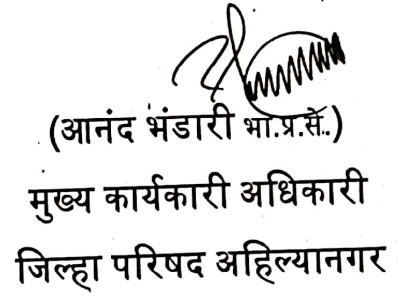 (आनंद भंडारी भा.प्र.से.)
मुख्य कार्यकारी अधिकारी
जिल्हा परिषद अहिल्यानगर